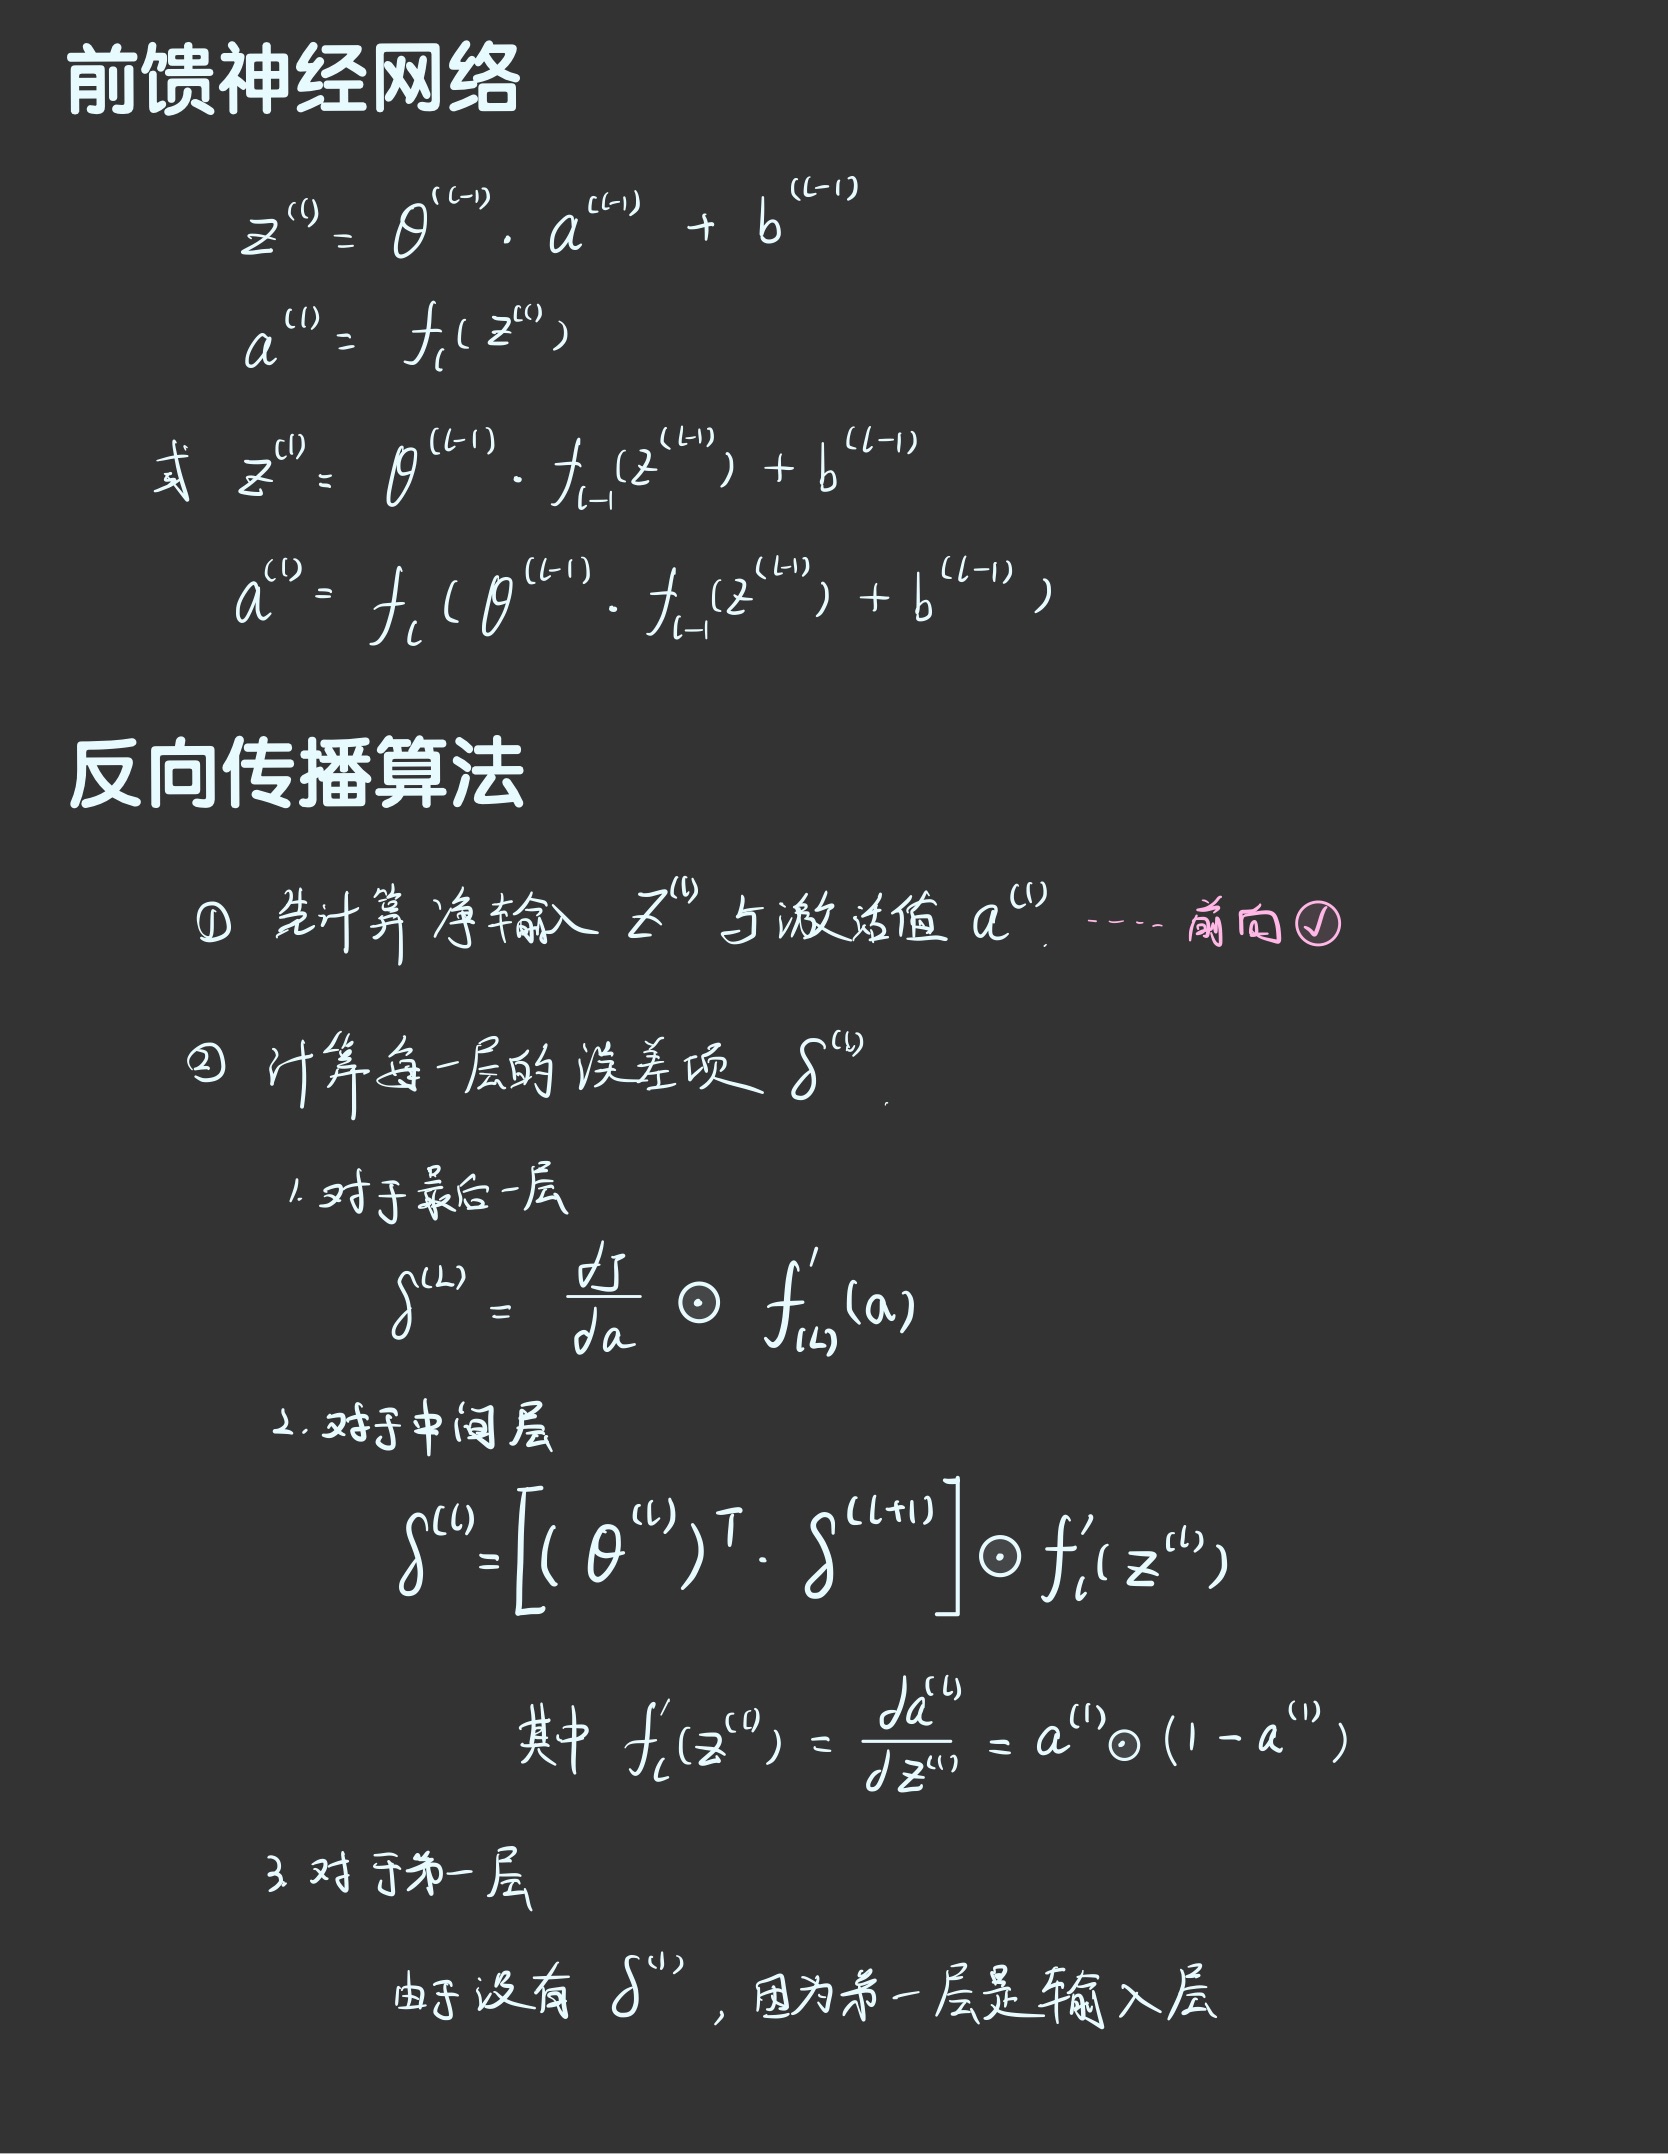 前馈神经网络
z^(l) = θ^(l-1) · a^(l-1) + b^(l-1)
a^(l) = f_l(z^(l))
或 z^(l) = θ^(l-1) · f_{l-1}(z^(l-1)) + b^(l-1)
a^(l) = f_l(θ^(l-1) · f_{l-1}(z^(l-1)) + b^(l-1))
反向传播算法
① 先计算净输入 z^(l) 与激活值 a^(l). ····· 前向✓
② 计算每一层的误差项 δ^(l).
1. 对于最后一层
δ^(L) = dJ/da ⊙ f'_(L)(a)
2. 对于中间层
δ^(l) = [(θ^(l))^T · δ^(l+1)] ⊙ f'_l(z^(l))
其中 f'_l(z^(l)) = da^(l)/dz^(l) = a^(l) ⊙ (1 - a^(l))
3. 对于第一层
由于没有 δ^(1), 因为第一层是输入层